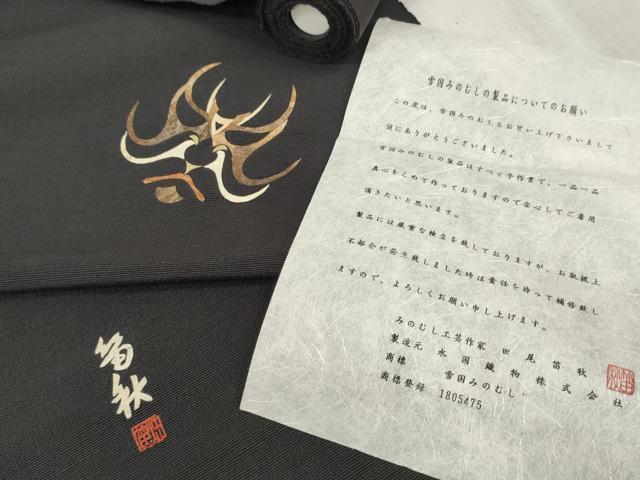 雪国みのむしの製品についてのお願い
この度は、雪国みのむしをお買い上げ下さいまして
誠にありがとうございました。
雪国みのむしの製品はすべて手作業で、一品一品
真心をこめて作っておりますので安心してご着用
頂きたいと思います。
製品には厳重な検査を致しておりますが、お取扱上
不都合が発生致しました時は責任を持って補修致し
ますので、よろしくお願い申し上げます。
みのむし工芸作家 田尾笛秋
製造元 水国織物株式会社
商標 雪国みのむし
商標登録 1805475
笛秋